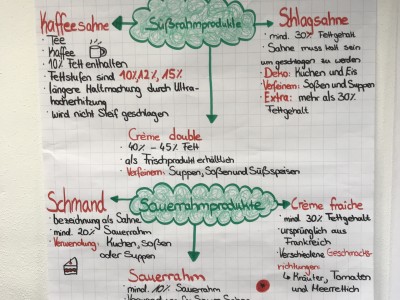 Kaffeesahne
Süßrahmprodukte
Schlagsahne
- Tee
- Kaffee
- 10% Fett enthalten
- Fettstufen sind 10%, 12%, 15%
- längere Haltmachung durch Ultra-
hocherhitzung
- wird nicht steif geschlagen
- mind. 30% Fettgehalt
- Sahne muss kalt sein
um geschlagen zu werden
- Deko: Kuchen und Eis
- Verfeinern: Soßen und Suppen
- Extra: mehr als 30%
Fettgehalt
Crème double
- 40% - 45% Fett
- als Frischprodukt erhältlich
- Verfeinern: Suppen, Soßen und Süßspeisen
Schmand
Sauerrahmprodukte
Crème fraiche
- bezeichnung als Sahne
- mind. 20% Sauerrahm
- Verwendung: Kuchen, Soßen
oder Suppen
- mind. 30% Fettgehalt
- ursprünglich aus
Frankreich
- Verschiedene Geschmacks-
richtungen:
↳ Kräuter, Tomaten
und Meerrettich
Sauerrahm
- mind. 10% Sauerrahm